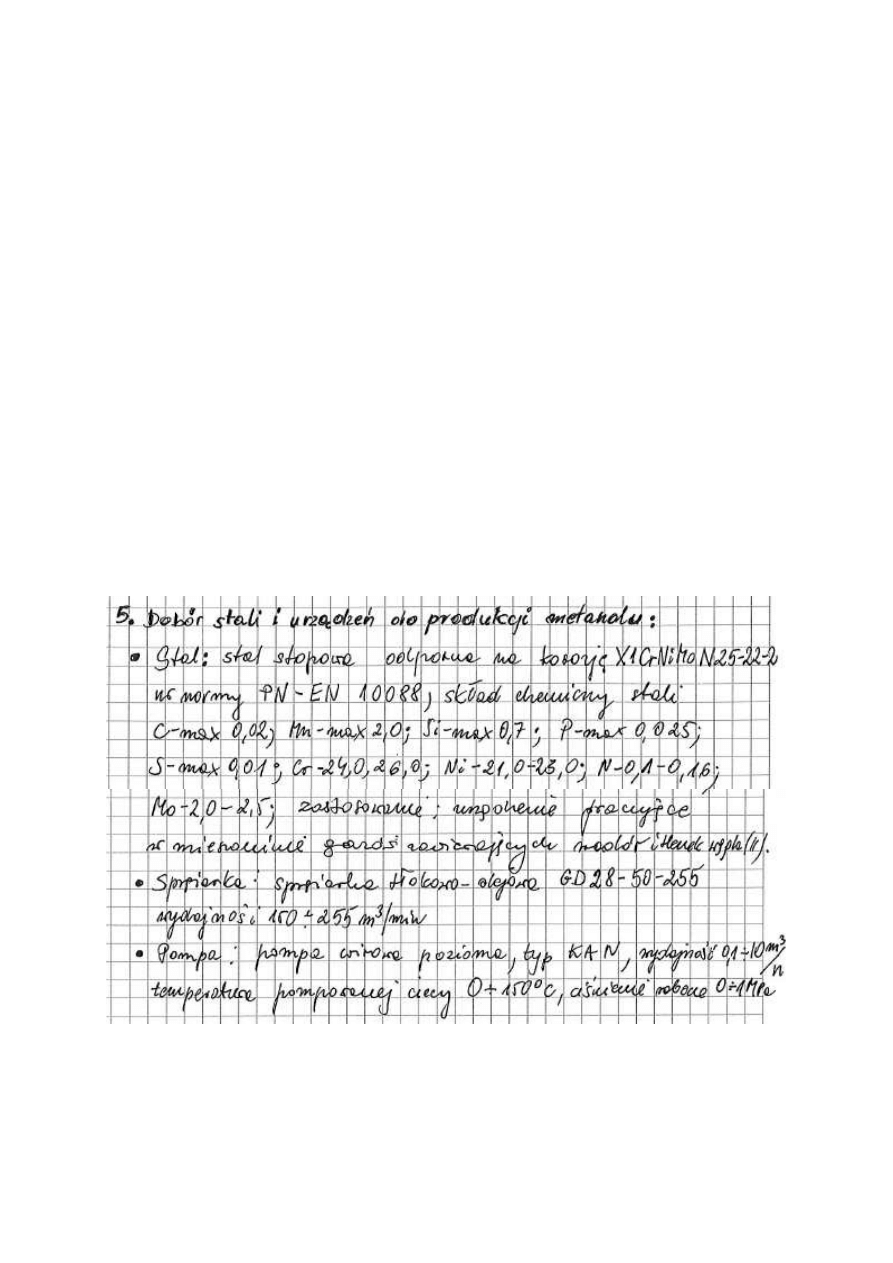 5. Dobór stali i urządzeń do produkcji metanolu:
• Stal: stal stopowa odporna na korozję X1CrNiMoN25-22-2
wg normy PN-EN 10088, skład chemiczny stali
C-max 0,02; Mn-max 2,0; Si-max 0,7; P-max 0,025;
S-max 0,01; Cr-24,0, 26,0; Ni-21,0-23,0; N-0,1-0,16;
Mo-2,0-2,5; zastosowanie: pracujące
w zawierających wodór i tlenek węgla (II).
• Sprężarka: sprężarka tłokowo-olejowa GD28-50-255
wydajność 150÷255 m³/min
• Pompa: pompa wirowa pozioma, typ KAN, wydajność 0,1÷10 m³/h
temperatura pompowanej cieczy 0÷150°C, ciśnienie robocze 0÷1MPa